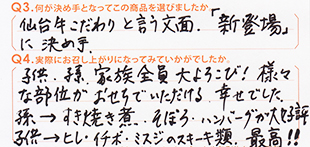 Q3.何が決め手となってこの商品を選びましたか
仙台牛こだわりと言う文面.「新登場」
に決め手.
Q4.実際にお召し上がりになってみていかがでしたか。
子供.孫.家族全員大よろこび!様々
な部位がおせちでいただける.幸せでした.
孫→すき焼き煮..そぼろ・ハンバーグが大好評
子供→ヒレ・イチボ・ミスジのステーキ類.最高!!